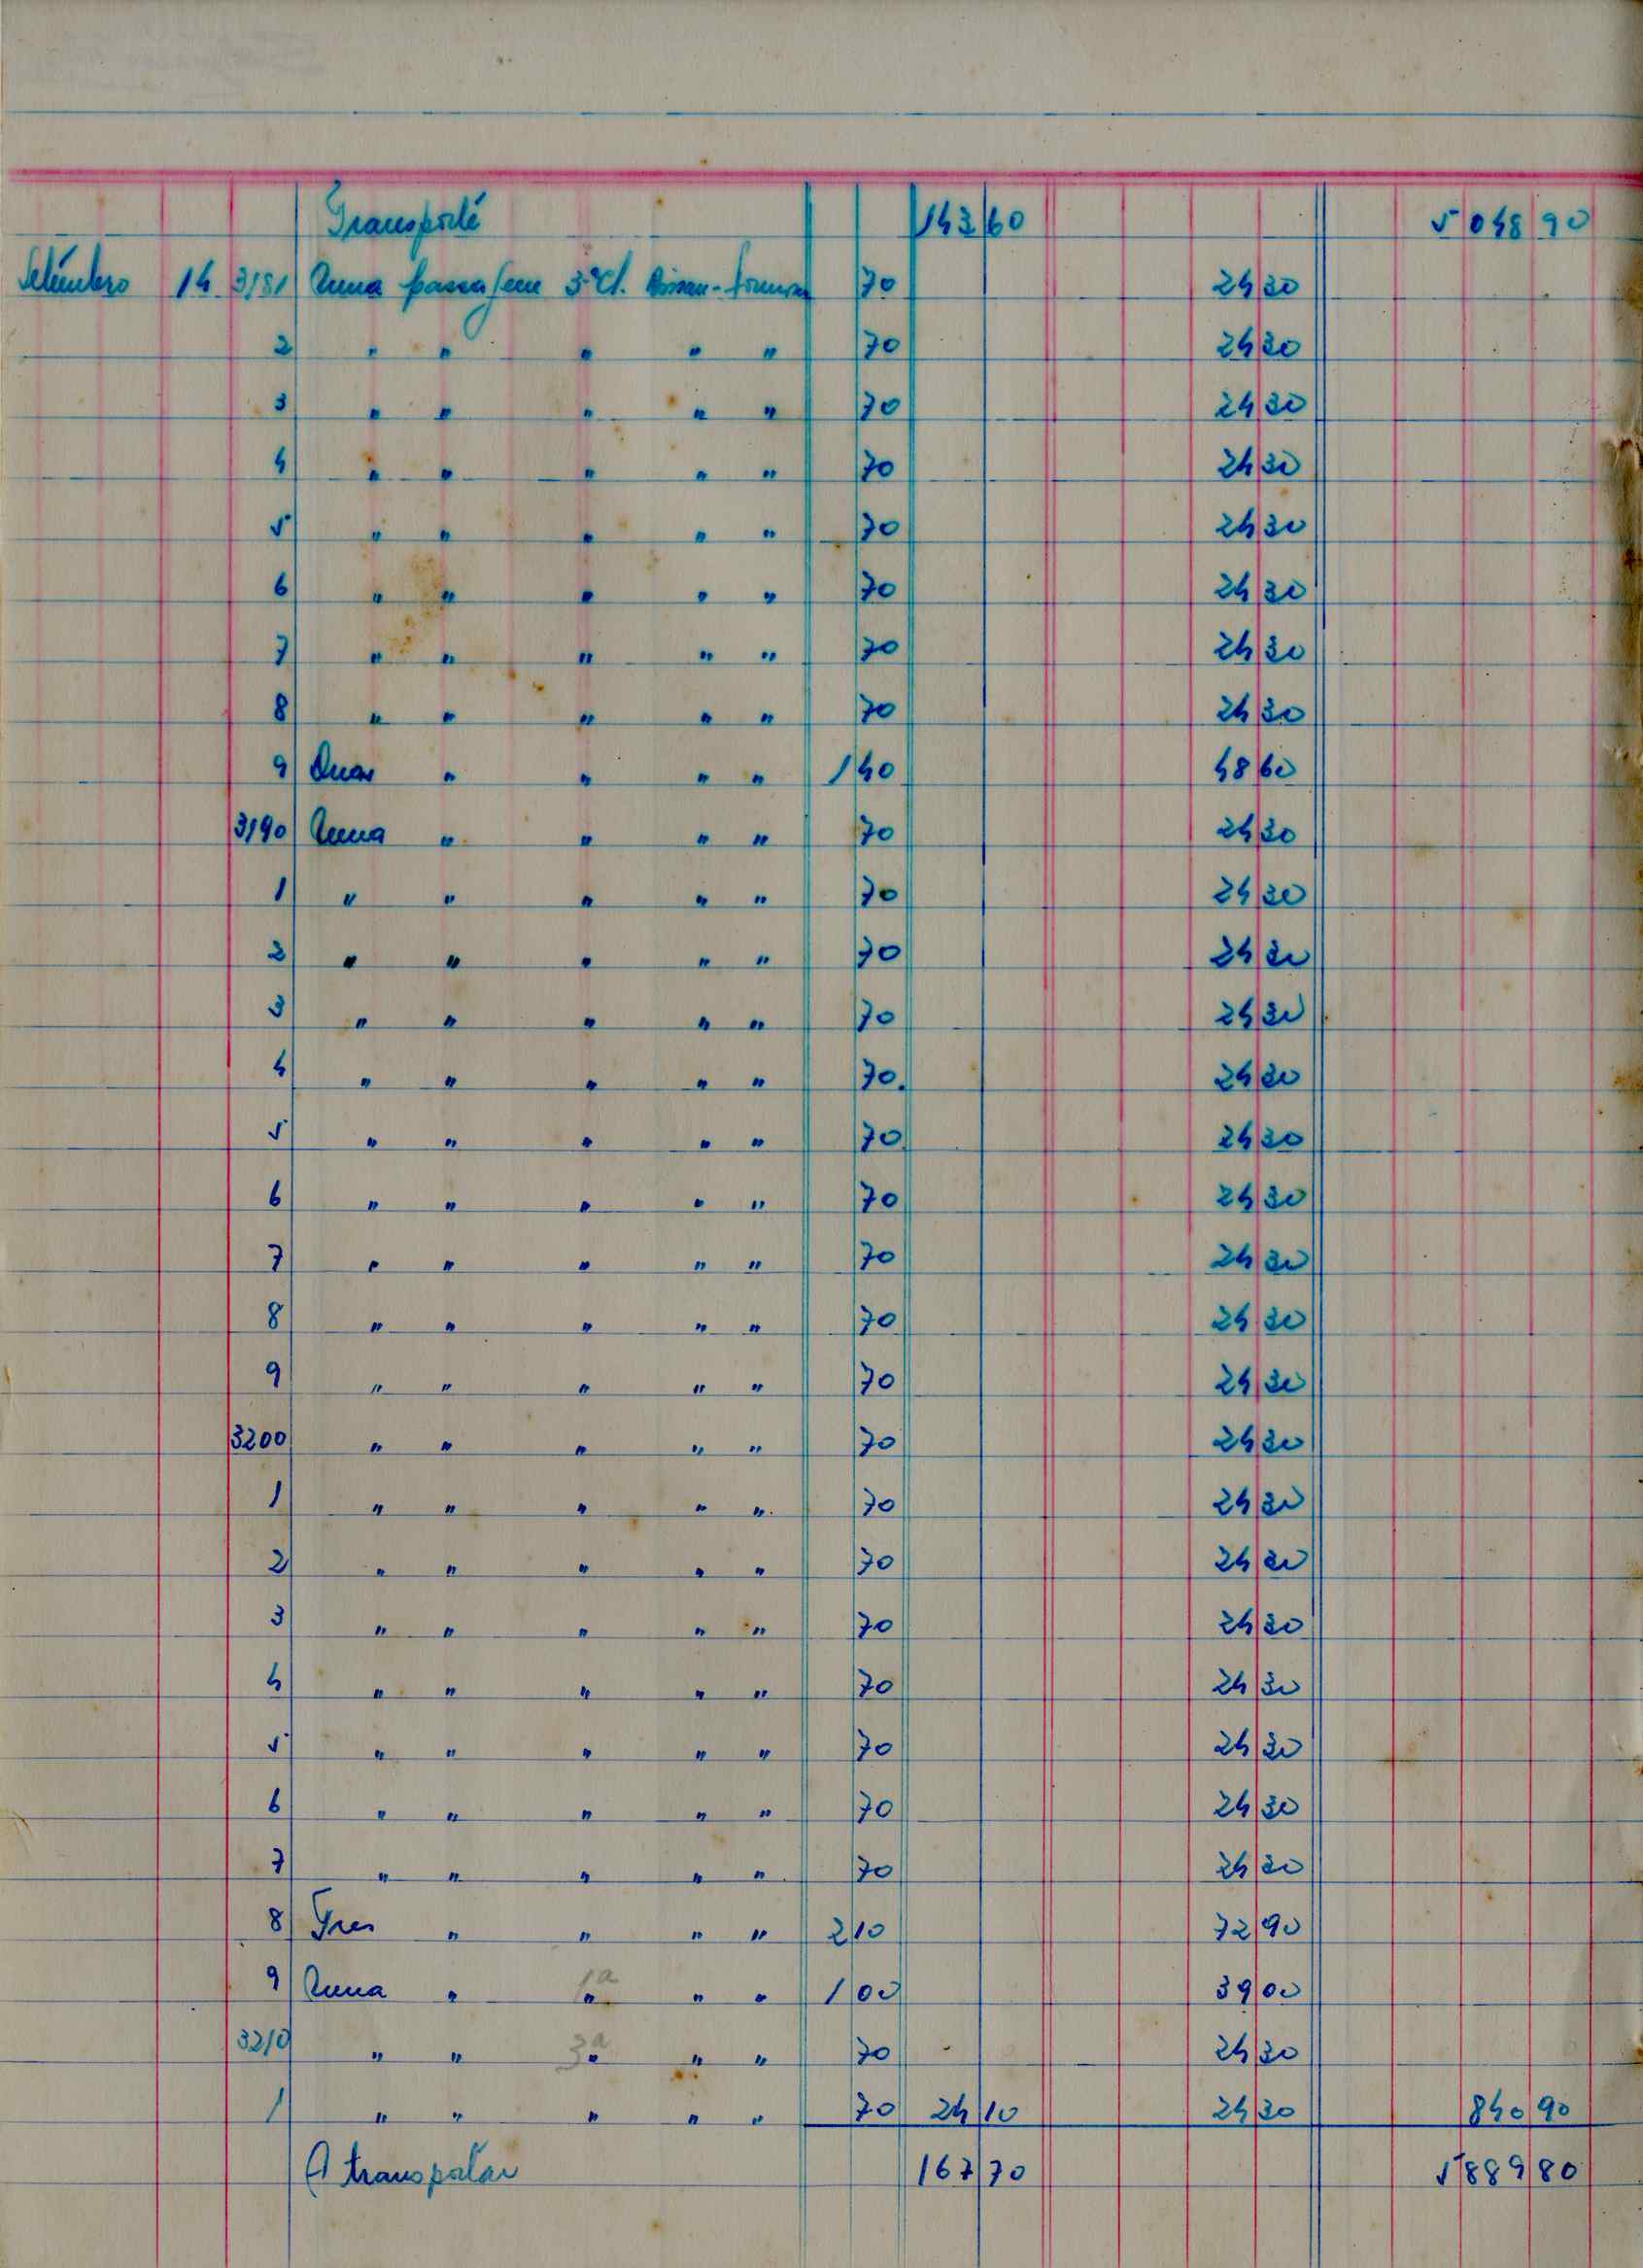 Transporte 143 60 5 048 90
Setembro 14 3181 Uma passagem 3ª Cl. Bissau-Formosa 70 24 30
2 " " " " " 70 24 30
3 " " " " " 70 24 30
4 " " " " " 70 24 30
5 " " " " " 70 24 30
6 " " " " " 70 24 30
7 " " " " " 70 24 30
8 " " " " " 70 24 30
9 Duas " " " " 1 40 48 60
3190 Uma " " " " 70 24 30
1 " " " " " 70 24 30
2 " " " " " 70 24 30
3 " " " " " 70 24 30
4 " " " " " 70. 24 30
5 " " " " " 70 24 30
6 " " " " " 70 24 30
7 " " " " " 70 24 30
8 " " " " " 70 24 30
9 " " " " " 70 24 30
3200 " " " " " 70 24 30
1 " " " " " 70 24 30
2 " " " " " 70 24 30
3 " " " " " 70 24 30
4 " " " " " 70 24 30
5 " " " " " 70 24 30
6 " " " " " 70 24 30
7 " " " " " 70 24 30
8 Tres " " " " 2 10 72 90
9 Uma " 1ª " " " 1 00 39 00
3210 " " 3ª " " " 70 24 30
1 " " " " " 70 24 10 24 30 840 90
A transportar 167 70 5 889 80